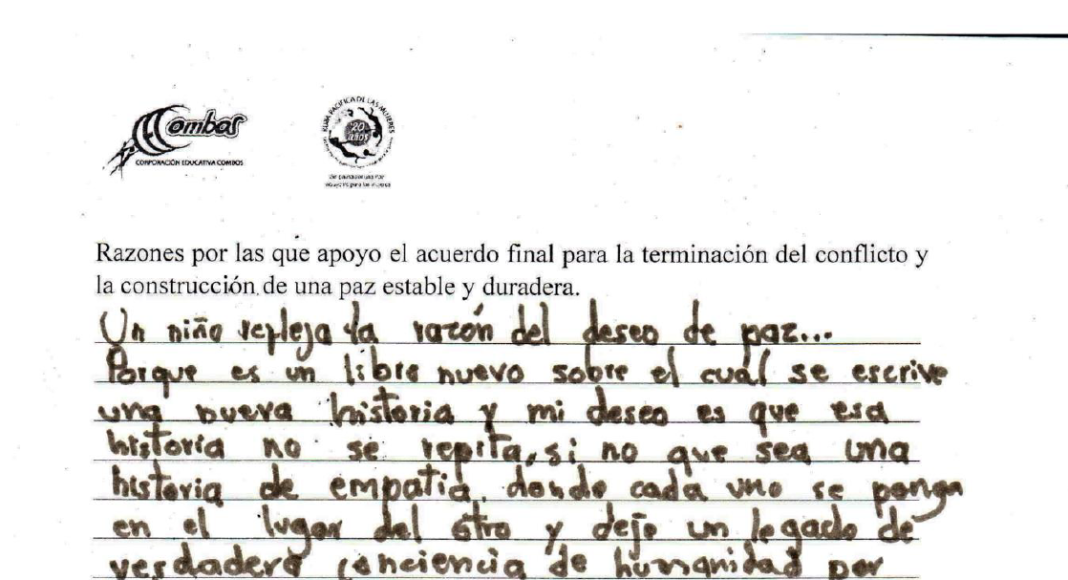 Combos
CORPORACIÓN EDUCATIVA COMBOS
RUTA PACÍFICA DE LAS MUJERES
20
años
Razones por las que apoyo el acuerdo final para la terminación del conflicto y
la construcción de una paz estable y duradera.
Un niño refleja la razón del deseo de paz...
Porque es un libre nuevo sobre el cuál se escrive
una nueva historia y mi deseo es que esa
historia no se repita, si no que sea una
historia de empatia, donde cada uno se ponga
en el lugar del otro y deje un legado de
verdadera conciencia de humanidad por